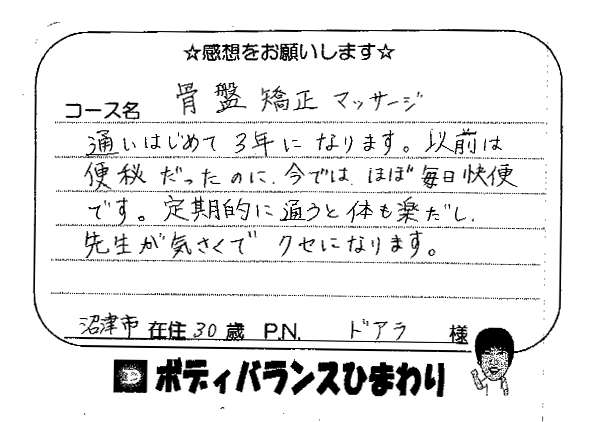 ☆感想をお願いします☆
コース名 骨盤矯正マッサージ
通いはじめて3年になります。以前は
便秘だったのに、今では、ほぼ毎日快便
です。定期的に通うと体も楽だし、
先生が気さくで クセになります。
沼津市 在住 30歳 P.N. ドアラ 様
ボディバランスひまわり